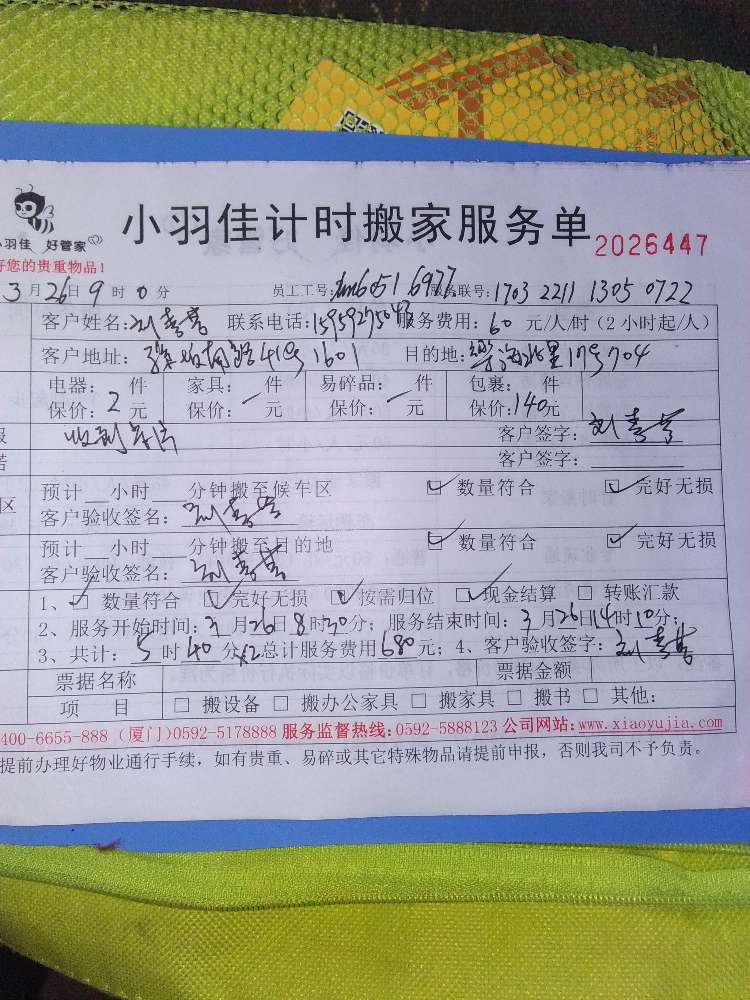 小羽佳 好管家
小羽佳计时搬家服务单 2026447
好您的贵重物品!
3月26日9时0分 员工工号: 6977 服务联号:1703 2211 1305 0722
客户姓名: 联系电话: 服务费用:60元/人/时(2小时起/人)
客户地址: 41号1601 目的地: 17号704
电器: 件 家具: 件 易碎品: 件 包裹: 件
保价:2元 保价:一元 保价:一元 保价:140元
收到 客户签字:
客户签字:
预计 小时 分钟搬至候车区 ☑ 数量符合 ☑ 完好无损
客户验收签名:
预计 小时 分钟搬至目的地 ☑ 数量符合 ☑ 完好无损
客户验收签名:
1、☑ 数量符合 ☑ 完好无损 ☑ 按需归位 ☑ 现金结算 □ 转账汇款
2、服务开始时间:3月26日8时30分; 服务结束时间:3月26日14时10分;
3、共计:5时40分x2总计服务费用680元;4、客户验收签字:
票据名称 票据金额
项 目 □ 搬设备 □ 搬办公家具 □ 搬家具 □ 搬书 □ 其他:
400-6655-888 (厦门)0592-5178888 服务监督热线:0592-5888123 公司网站:www.xiaoyujia.com
提前办理好物业通行手续,如有贵重、易碎或其它特殊物品请提前申报,否则我司不予负责。